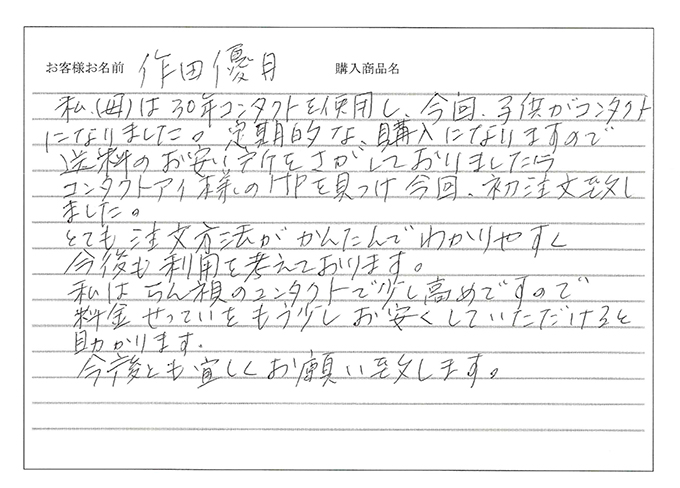 お客様お名前 作田優月 購入商品名
私(母)は30年コンタクトを使用し、今回、子供がコンタクト
になりました。定期的な、購入になりますので
送料のお安い所をさがしておりましたら
コンタクトアイ様のHPを見つけ今回、初注文致し
ました。
とても注文方法がかんたんでわかりやすく
今後も利用を考えております。
私はらん視のコンタクトで少し高めですので
料金せっていをもう少しお安くしていただけると
助かります。
今後とも宜しくお願い致します。